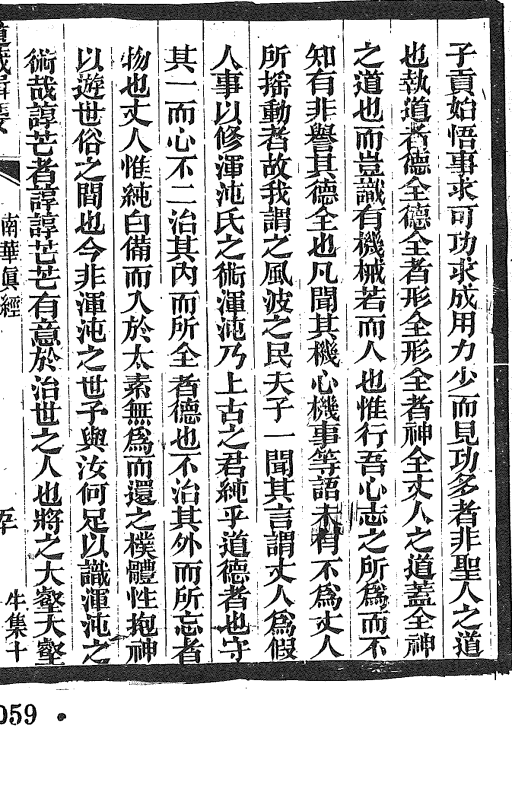 子貢始悟事求可功求成用力少而見功多者非聖人之道
也執道者德全德全者形全形全者神全丈人之道蓋全神
之道也而豈識有機械若而人也惟行吾心志之所爲而不
知有非譽其德全也凡聞其機心機事等語未有不爲丈人
所搖動者故我謂之風波之民夫子一聞其言謂丈人爲假
人事以修渾沌氏之術渾沌乃上古之君純乎道德者也守
其一而心不二治其內而所全者德也不治其外而所忘者
物也丈人惟純白備而入於太素無爲而還之樸體性抱神
以遊世俗之間也今非渾沌之世子與汝何足以識渾沌之
術哉諄芒者諄諄芒芒有意於治世之人也將之大壑大壑
道藏輯要
南華眞經
牛集十
059